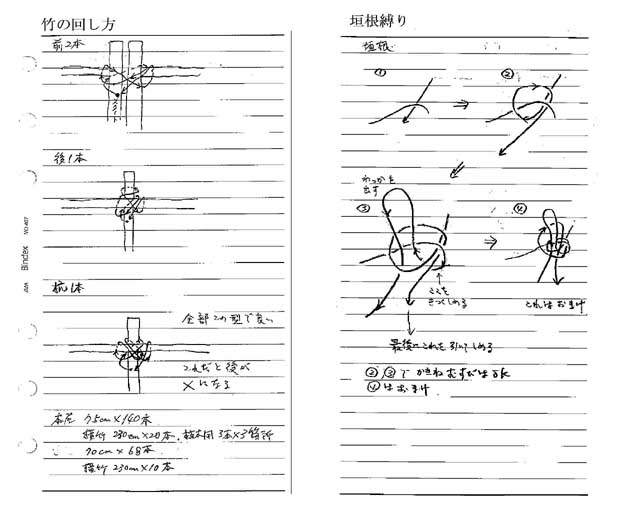 竹の回し方
前2本
スタート
後1本
杭1本
全部この型で良い
これだと後が
×になる
75cm×140本
横竹 230cm×20本
70cm×68本
横竹 230cm×10本
Bindex
垣根縛り
垣根
①
⇒
②
わっかを
出す
③
⇒
④
ここを
きつくしめる
これはおまけ
最後にこれを引いてしめる
②,③でかきねむすびはOK
④はおまけ